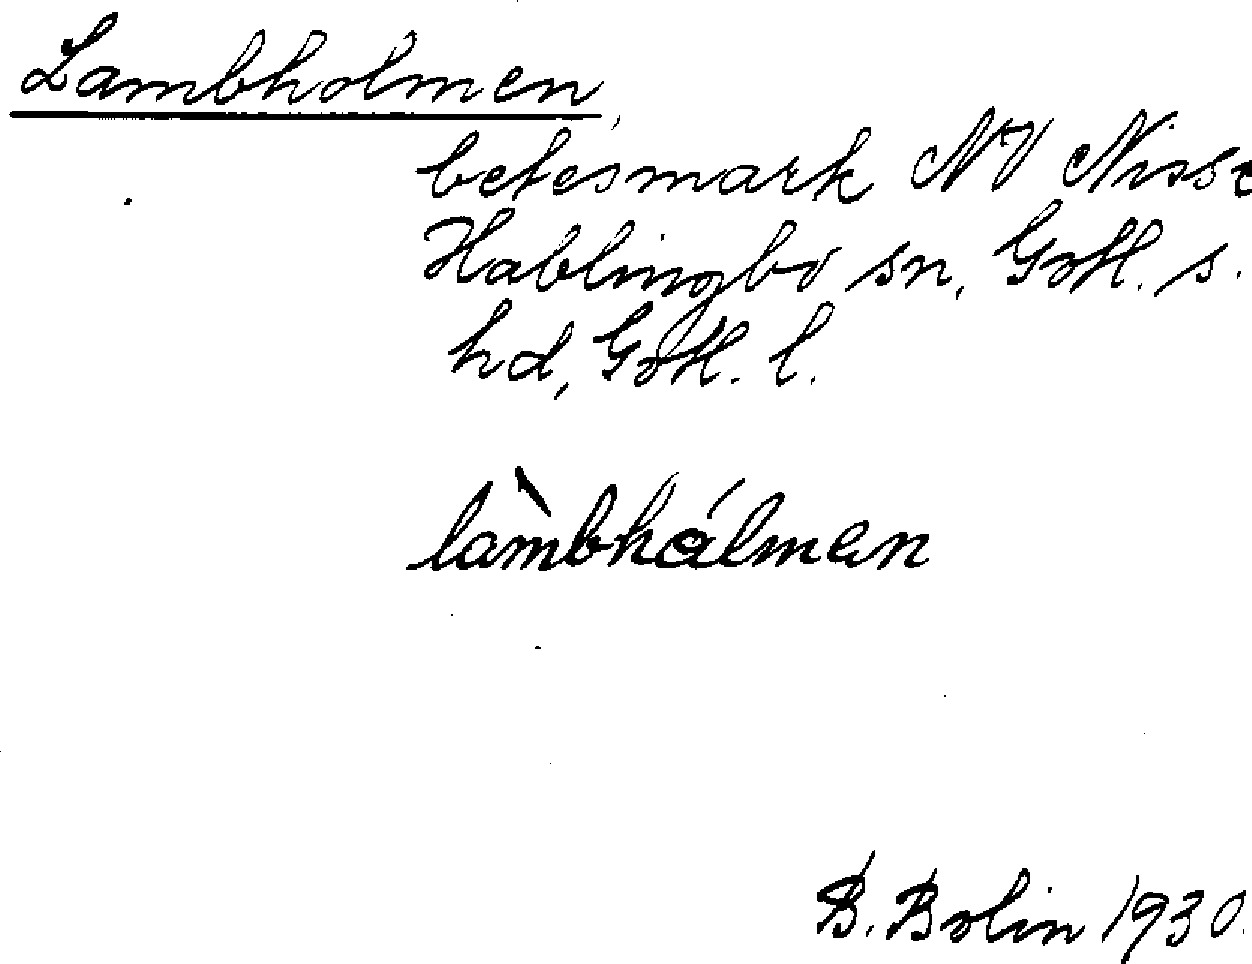 Lambholmen,
betesmark NV Nisse
Hablingbo sn, Gotl. s.
hd, Gotl. l.
làmbhálmen
B. Bolin 1930.